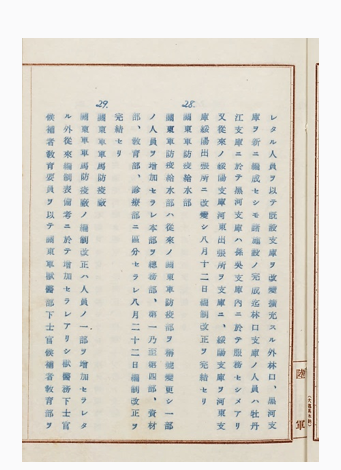 レタル人員ヲ以テ既設支庫ヲ改變擴充スル外林口、黑河支
庫ヲ新ニ編成セシモ諸施設ノ完成迄林口支庫ノ人員ハ牡丹
江支庫ニ於テ黑河支庫ハ孫吳支庫內ニ於テ服務セシメアリ
又從來ノ綏陽支庫河東出張所ヲ支庫ニ、綏陽支庫ヲ河東支
庫綏陽出張所ニ改變シ八月十二日編制改正ヲ完結セリ
28. 關東軍防疫給水部
關東軍防疫給水部ハ從來ノ關東軍防疫部ヲ改編變更シ一部
ノ人員ヲ增加セラレ本部ヲ總務部、第一乃至第四部、資材
部、敎育部、診療部ニ區分セラレ八月二十二日編制改正ヲ
完結セリ
29. 關東軍軍馬防疫廠
關東軍軍馬防疫廠ノ編制改正ハ人員ノ一部ヲ增加セラレタ
ル外從來編制表備考ニ於テ增加セラレアリシ獸醫務下士官
候補者敎育要員ヲ以テ關東軍獸醫部下士官候補者敎育部ヲ
陸軍